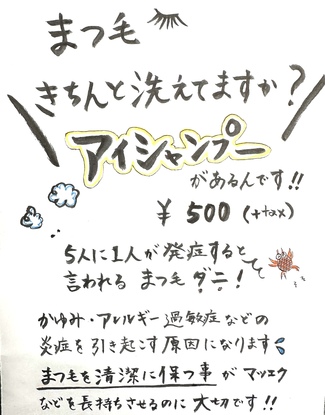 まつ毛
きちんと洗えてますか?
アイシャンプー
があるんです!!
¥500 (+tax)
5人に1人が発症すると
言われる まつ毛ダニ!
かゆみ・アレルギー過敏症などの
炎症を引き起こす原因になります
まつ毛を清潔に保つ事がマツエク
などを長持ちさせるのに大切です!!